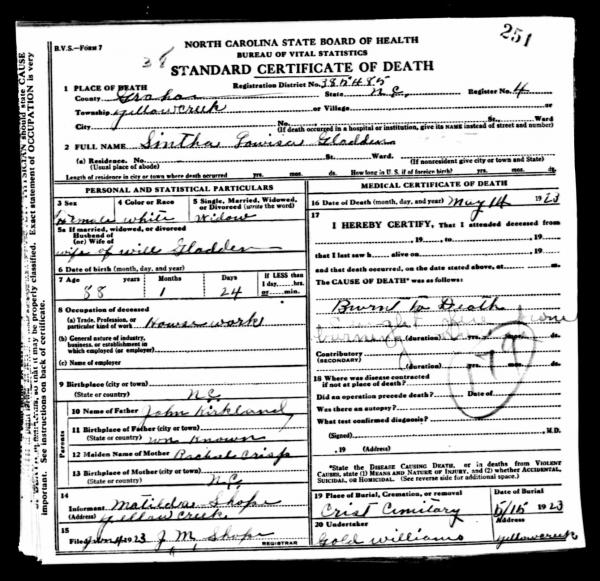 251
B.V.S.—FORM 7
38
NORTH CAROLINA STATE BOARD OF HEALTH
BUREAU OF VITAL STATISTICS
STANDARD CERTIFICATE OF DEATH
1 PLACE OF DEATH Registration District No. 385485 Register No. 4
County Graham State N.C.
Township yellow creek or Village or
City No. St. Ward
(If death occurred in a hospital or institution, give its NAME instead of street and number)
2 FULL NAME Sintha Lowisa Gladden
(a) Residence. No. St. Ward.
(Usual place of abode) (If nonresident give city or town and State)
Length of residence in city or town where death occurred yrs. mos. ds. How long in U. S. if of foreign birth? yrs. mos. ds.
PERSONAL AND STATISTICAL PARTICULARS
3 Sex 4 Color or Race 5 Single, Married, Widowed, or Divorced (write the word)
Female white Widow
5a If married, widowed, or divorced
Husband of
(or) Wife of
wife of will Gladden
6 Date of birth (month, day, and year)
7 Age years Months Days If LESS than 1 day, hrs. or min.
88 1 24
8 Occupation of deceased
(a) Trade, Profession, or particular kind of work House work
(b) General nature of industry, business, or establishment in which employed (or employer)
(c) Name of employer
9 Birthplace (city or town)
(State or country) N.C.
Parents
10 Name of Father John Kirkland
11 Birthplace of Father (city or town)
(State or country) un Known
12 Maiden Name of Mother Rachael Crisp
13 Birthplace of Mother (city or town)
(State or country) N.C.
14
Informant Matilda Shope
(Address) yellow creek
15
Filed 1923 J M Shope
REGISTRAR
MEDICAL CERTIFICATE OF DEATH
16 Date of Death (month, day, and year) May 14 1923
17
I HEREBY CERTIFY, That I attended deceased from
, 19 , to , 19
that I last saw h alive on , 19
and that death occurred, on the date stated above, at m.
The CAUSE OF DEATH* was as follows:
Burnt to Death
burning (duration) yrs. mos. ds.
Contributory
(SECONDARY)
(duration) yrs. mos. ds.
179
18 Where was disease contracted
if not at place of death?
Did an operation precede death? Date of
Was there an autopsy?
What test confirmed diagnosis?
(Signed) M.D.
, 19 (Address)
*State the DISEASE CAUSING DEATH, or in deaths from VIOLENT CAUSES, state (1) MEANS AND NATURE OF INJURY, and (2) whether ACCIDENTAL, SUICIDAL, or HOMICIDAL. (See reverse side for additional space.)
19 Place of Burial, Cremation, or removal Date of Burial
Crist Cimitary 5/15 1923
20 Undertaker Address
Gold williams yellow creek
PHYSICIAN should state CAUSE
Exact statement of OCCUPATION is very
so that it may be properly classified.
important. See instructions on back of certificate.